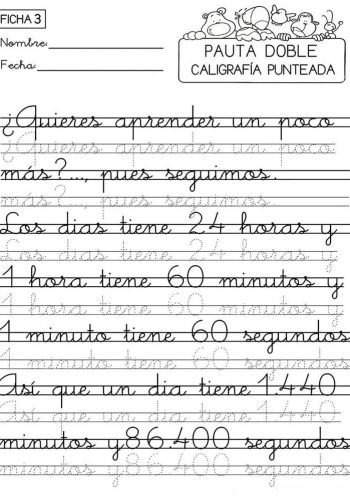 FICHA 3
Nombre:
Fecha:
PAUTA DOBLE
CALIGRAFÍA PUNTEADA
¿Quieres aprender un poco
¿Quieres aprender un poco
más?..., pues seguimos.
más?..., pues seguimos.
Los dias tiene 24 horas y
Los dias tiene 24 horas y
1 hora tiene 60 minutos y
1 hora tiene 60 minutos y
1 minuto tiene 60 segundos
1 minuto tiene 60 segundos
Así que un dia tiene 1.440
Así que un dia tiene 1.440
minutos y 86.400 segundos
minutos y 86.400 segundos